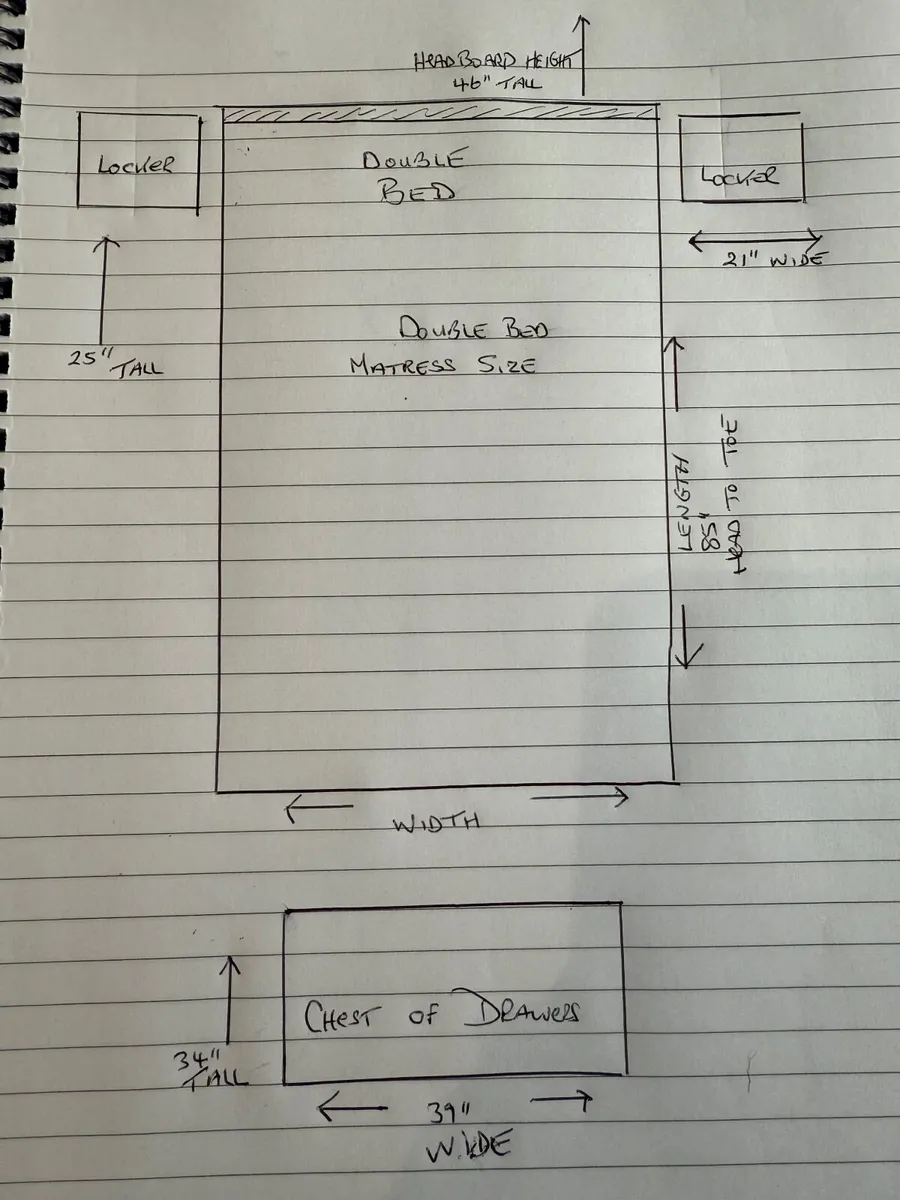 HEADBOARD HEIGHT
46" TALL
LOCKER
DOUBLE
BED
LOCKER
21" WIDE
25" TALL
DOUBLE BED
MATRESS SIZE
LENGTH
85"
HEAD TO TOE
WIDTH
CHEST OF DRAWERS
34"
TALL
39"
WIDE